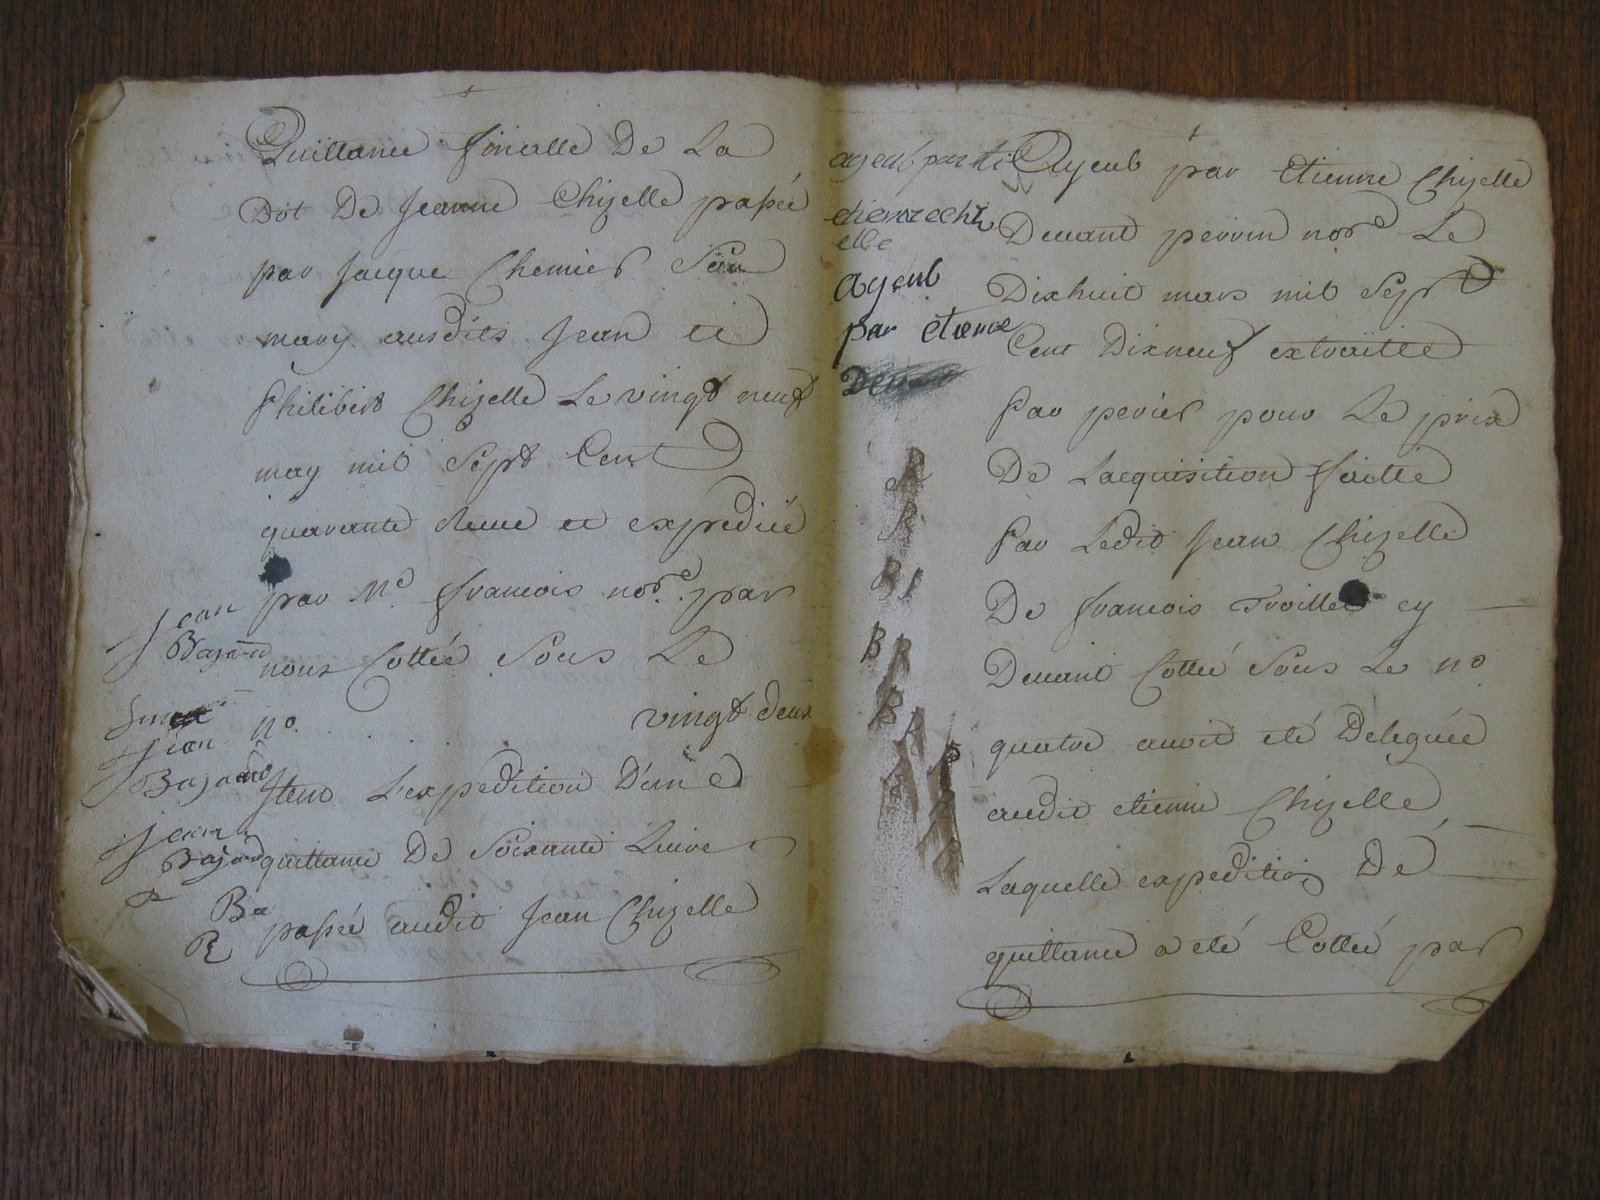 Quittance finalle De La
Dot De Jeanne Chizelle passée
par Jacque Chemier Son
mary ausdits Jean et
Philibert Chizelle Le vingt neuf
may mil Sept Cent
quarante et expediée
par Me francois nore. par
nous Cottée Sous Le
no. vingt deux
Item L'expedition D'une
quittance De Soixante Livres
passée audit Jean Chizelle
Jean
Bajard
Jean
Bajard
Jean
Bajard
Ba
B
Ayeul par Etienne Chizelle
Devant perrin nore Le
Dixhuit mars mil Sept
Cent Dixneuf extraitte
Par perier pour Le prix
De Lacquisition faitte
Par Ledit Jean Chizelle
De francois Troillet cy
Devant Cottée Sous Le no
quatre avoit eté Deleguée
audit etienne Chizelle
Laquelle expedition De
quittance a eté Cottée par
ayeul par
elle
ayeul
par etienne
B
B
B